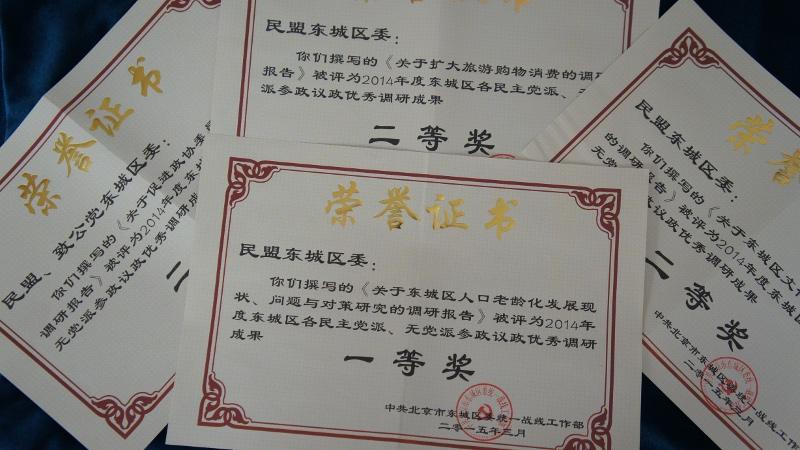 荣誉证书
民盟东城区委：
你们撰写的《关于扩大旅游购物消费的调研
报告》被评为2014年度东城区各民主党派、无党
派参政议政优秀调研成果
二等奖
荣誉证书
民盟、致公党东城区委：
你们撰写的《关于促进政协委员
调研报告》被评为2014年度东城区
无党派参政议政优秀调研成果
二
荣誉
民盟东城区委：
你们撰写的《关于东城区文
的调研报告》被评为2014年度东城区
无党派参政议政优秀调研成果
二等奖
中共北京市东城区委统一战线工作
二〇一五年三月
荣誉证书
民盟东城区委：
你们撰写的《关于东城区人口老龄化发展现
状、问题与对策研究的调研报告》被评为2014年
度东城区各民主党派、无党派参政议政优秀调研
成果
一等奖
中共北京市东城区委统一战线工作部
二〇一五年三月